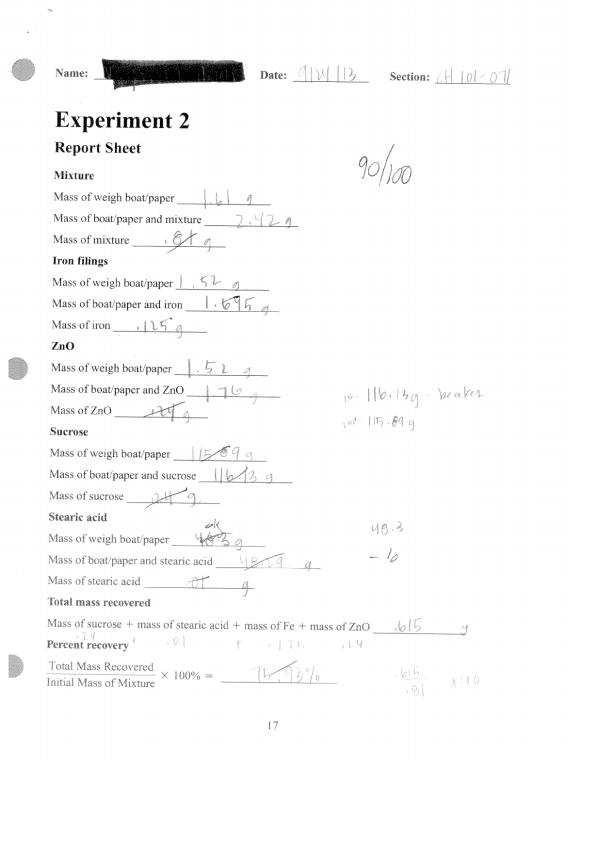 Name: Date: 9/24/13 Section: CH 101-071
Experiment 2
Report Sheet
90/100
Mixture
Mass of weigh boat/paper 1.61 g
Mass of boat/paper and mixture 2.42 g
Mass of mixture .81 g
Iron filings
Mass of weigh boat/paper 1.52 g
Mass of boat/paper and iron 1.695 g
Mass of iron .125 g
ZnO
Mass of weigh boat/paper 1.52 g
Mass of boat/paper and ZnO 1.76 g 1st- 116.13g - beaker
Mass of ZnO .24 g 2nd- 115.89 g
Sucrose
Mass of weigh boat/paper 115.89 g
Mass of boat/paper and sucrose 116.13 g
Mass of sucrose .24 g
Stearic acid
ok
Mass of weigh boat/paper 48.3 g 48.3
Mass of boat/paper and stearic acid 48.29 g - 10
Mass of stearic acid .01 g
Total mass recovered
Mass of sucrose + mass of stearic acid + mass of Fe + mass of ZnO .615 g
.24 + .01 + .125 .24
Percent recovery
Total Mass Recovered
Initial Mass of Mixture × 100% = 75.93% .615
.81 x100
17